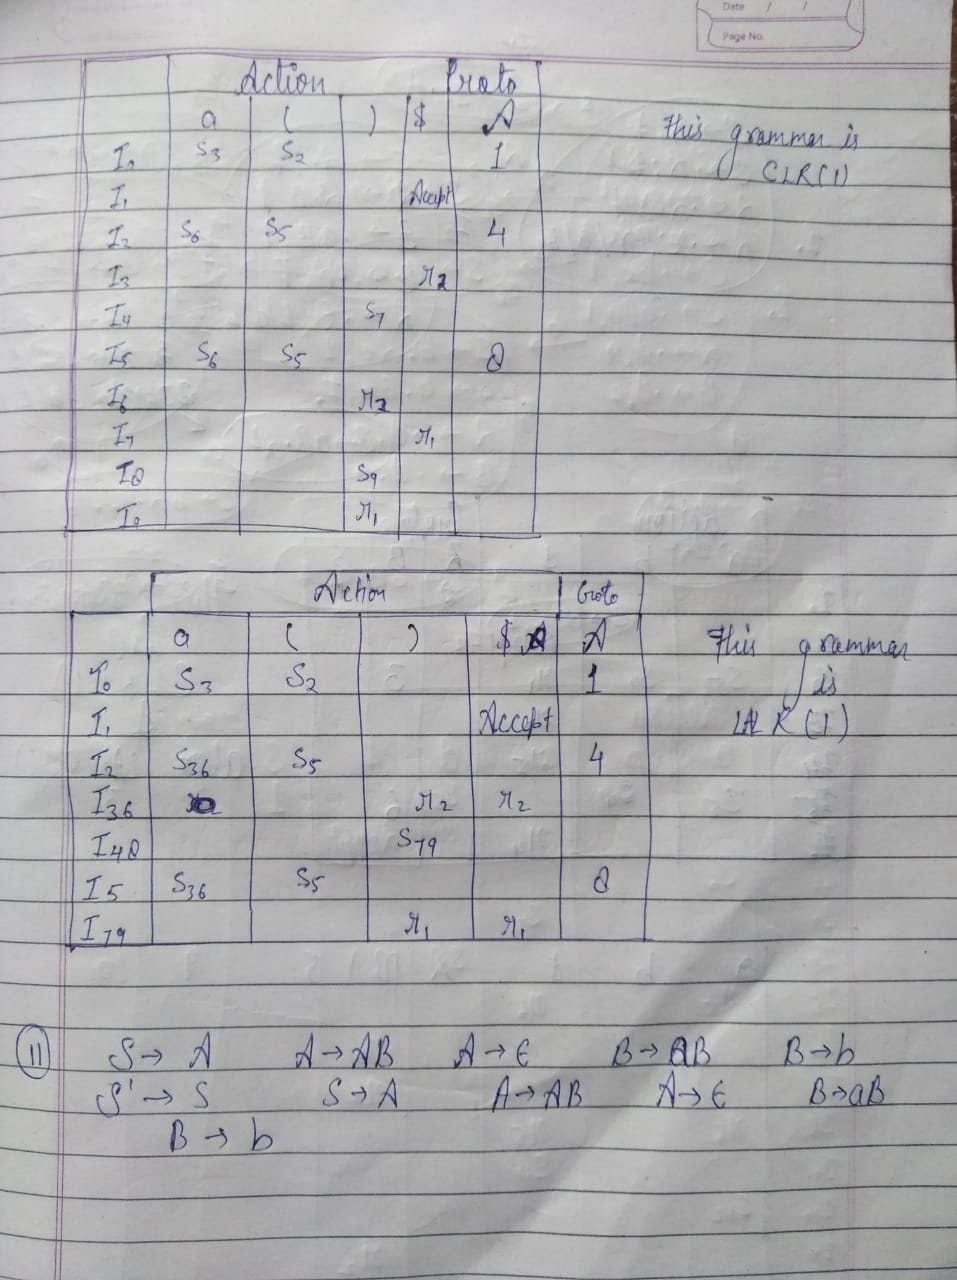 Date / /
Page No.
Action Goto
a ( ) $ A
I₀ S₃ S₂ 1
I₁ Accept
I₂ S₆ S₅ 4
I₃ r₂
I₄ S₇
I₅ S₆ S₅ 8
I₆ r₂
I₇ r₁
I8 S₉
I₉ r₁
This grammar is
CLR(1)
Action Goto
a ( ) $ A
I₀ S₃ S₂ 1
I₁ Accept
I₂ S₃₆ S₅ 4
I₃₆ r₂ r₂
I₄₈ S₇₉
I₅ S₃₆ S₅ 8
I₇₉ r₁ r₁
This grammar
is
LALR(1)
11 S→ A A→AB A→ϵ B→aB B→b
S'→ S S→A A→AB A→ϵ B→aB
B → b